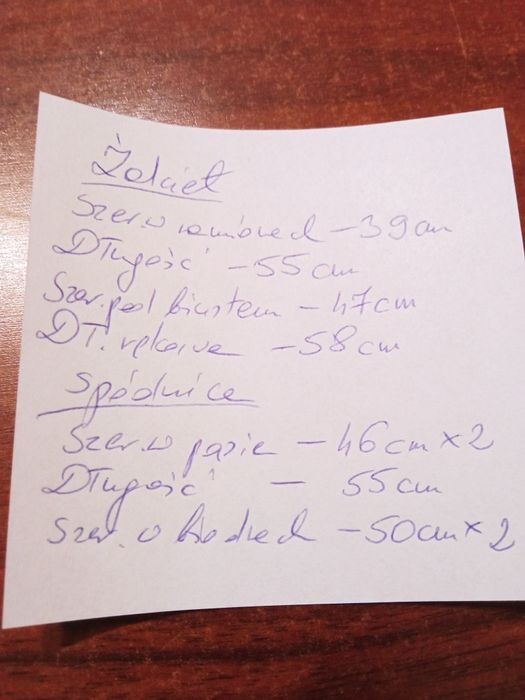 Żakiet
Szer. w ramionach – 39 cm
Długość – 55 cm
Szer. pod biustem – 47 cm
Dł. rękawa – 58 cm
Spódnica
Szer. w pasie – 46 cm x 2
Długość – 55 cm
Szer. w biodrach – 50 cm x 2